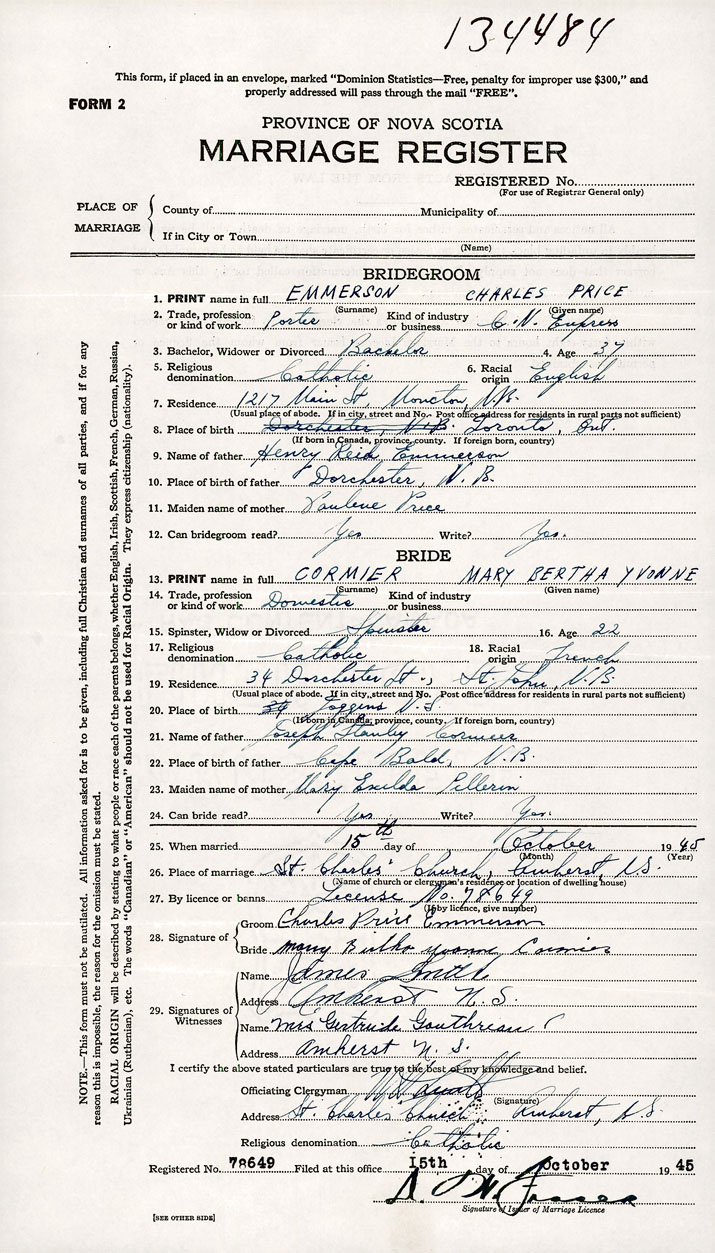 134484
This form, if placed in an envelope, marked "Dominion Statistics—Free, penalty for improper use $300," and
properly addressed will pass through the mail "FREE".
FORM 2
PROVINCE OF NOVA SCOTIA
MARRIAGE REGISTER
REGISTERED No.
(For use of Registrar General only)
PLACE OF MARRIAGE
County of Municipality of
If in City or Town
(Name)
BRIDEGROOM
1. PRINT name in full EMMERSON CHARLES PRICE
(Surname) (Given name)
2. Trade, profession or kind of work Porter Kind of industry or business C.N. Express
3. Bachelor, Widower or Divorced Bachelor 4. Age 37
5. Religious denomination Catholic 6. Racial origin English
7. Residence 1217 Main St, Moncton, N.B.
(Usual place of abode. If in city, street and No. Post office address for residents in rural parts not sufficient)
8. Place of birth Dorchester, N.B. Toronto, Ont.
(If born in Canada, province, county. If foreign born, country)
9. Name of father Henry Reid Emmerson
10. Place of birth of father Dorchester, N.B.
11. Maiden name of mother Paulene Price
12. Can bridegroom read? Yes Write? Yes.
BRIDE
13. PRINT name in full CORMIER MARY BERTHA YVONNE
(Surname) (Given name)
14. Trade, profession or kind of work Domestic Kind of industry or business
15. Spinster, Widow or Divorced Spinster 16. Age 22
17. Religious denomination Catholic 18. Racial origin French
19. Residence 34 Dorchester St., St. John, N.B.
(Usual place of abode. If in city, street and No. Post office address for residents in rural parts not sufficient)
20. Place of birth 34 Joggins N.S.
(If born in Canada, province, county. If foreign born, country)
21. Name of father Joseph Stanley Cormier
22. Place of birth of father Cape Bald, N.B.
23. Maiden name of mother Mary Exilda Pellerin
24. Can bride read? Yes Write? Yes.
25. When married 15th day of October 1945
(Month) (Year)
26. Place of marriage St. Charles' Church, Amherst, N.S.
(Name of church or clergyman's residence or location of dwelling house)
27. By licence or banns License No. 78649
(If by licence, give number)
28. Signature of
Groom Charles Price Emmerson
Bride Mary Bertha Yvonne Cormier
29. Signatures of Witnesses
Name James Smith
Address Amherst N.S.
Name Mrs Gertrude Gouthreau
Address Amherst N.S.
I certify the above stated particulars are true to the best of my knowledge and belief.
Officiating Clergyman
(Signature)
Address St. Charles Church, Amherst, N.S.
Religious denomination Catholic
Registered No. 78649 Filed at this office 15th day of October 1945
Signature of Issuer of Marriage Licence
[SEE OTHER SIDE]
NOTE.—This form must not be mutilated. All information asked for is to be given, including full Christian and surnames of all parties, and if for any
reason this is impossible, the reason for the omission must be stated.
RACIAL ORIGIN will be described by stating to what people or race each of the parents belongs, whether English, Irish, Scottish, French, German, Russian,
Ukrainian (Ruthenian), etc. The words "Canadian" or "American" should not be used for Racial Origin. They express citizenship (nationality).